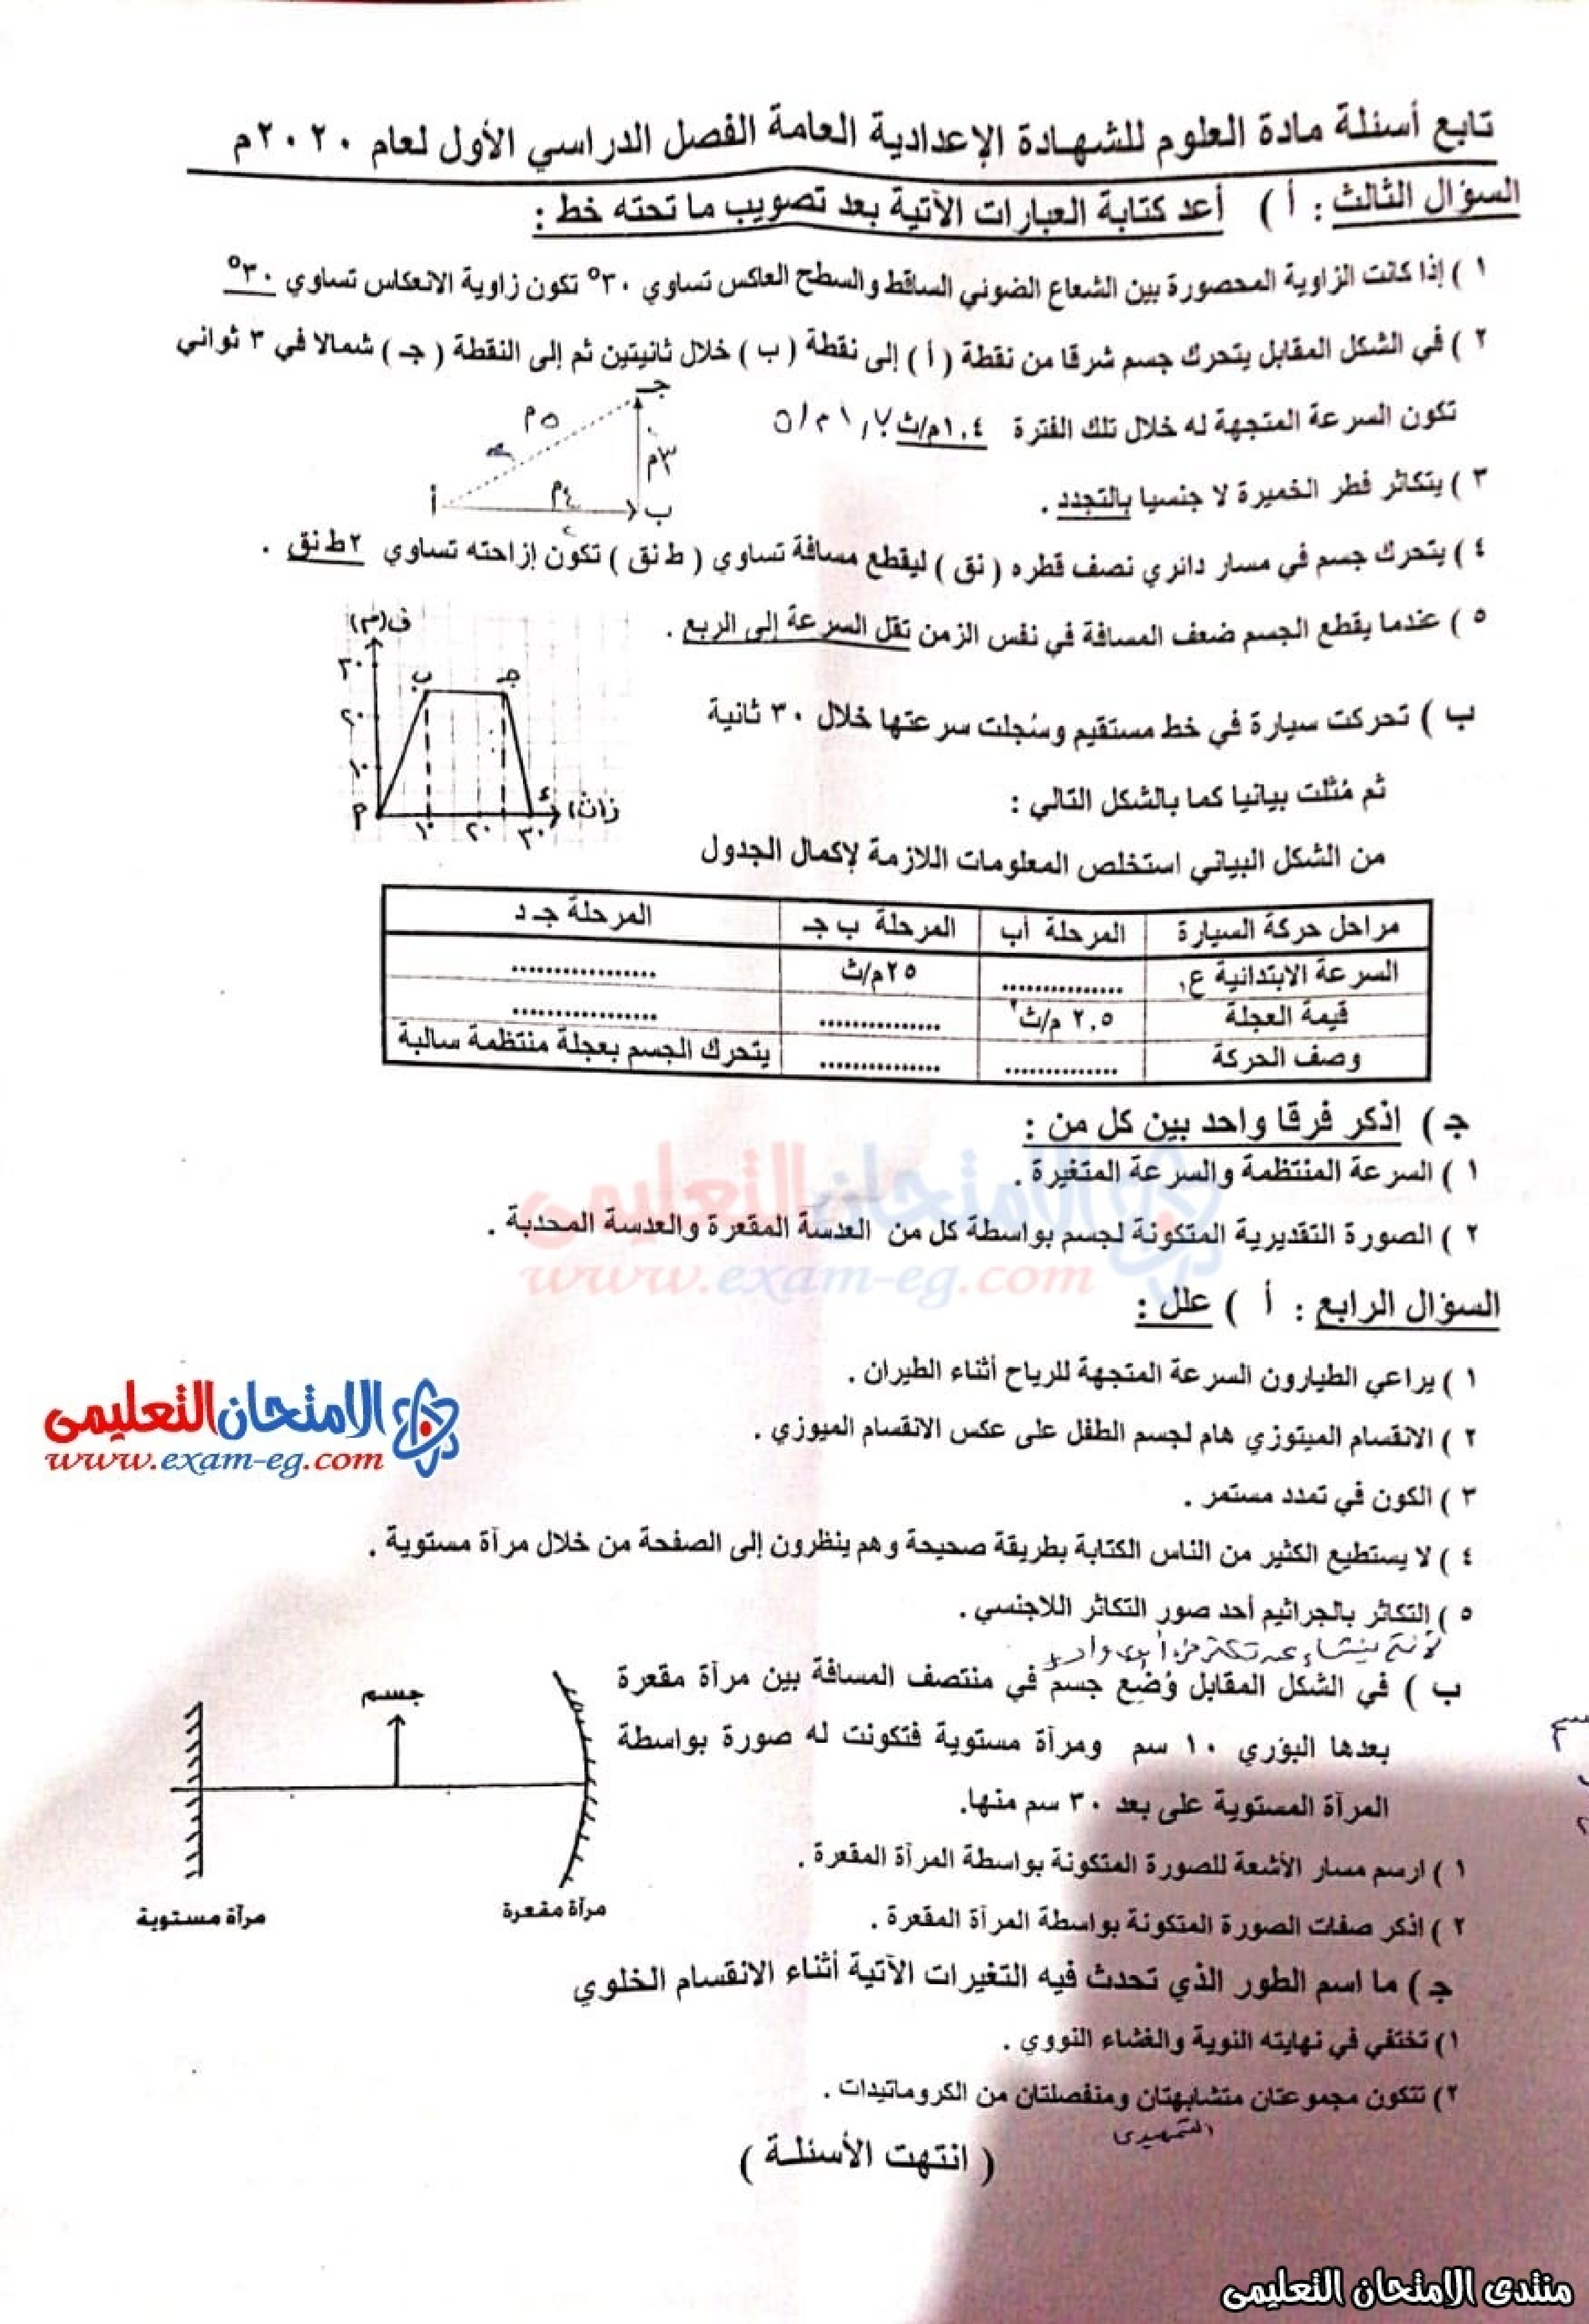 تابع أسئلة مادة العلوم للشهادة الإعدادية العامة الفصل الدراسي الأول لعام ٢٠٢٠م
السؤال الثالث : أ ) أعد كتابة العبارات الآتية بعد تصويب ما تحته خط :
١ ) إذا كانت الزاوية المحصورة بين الشعاع الضوئي الساقط والسطح العاكس تساوي ٣٠° تكون زاوية الانعكاس تساوي ٣٠°
٢ ) في الشكل المقابل يتحرك جسم شرقا من نقطة ( أ ) إلى نقطة ( ب ) خلال ثانيتين ثم إلى النقطة ( جـ ) شمالا في ٣ ثواني
تكون السرعة المتجهة له خلال تلك الفترة ١,٤م/ث
جـ
٥م
٣م
أ
٤م
ب
٣ ) يتكاثر فطر الخميرة لا جنسيا بالتجدد .
٤ ) يتحرك جسم في مسار دائري نصف قطره ( نق ) ليقطع مسافة تساوي ( ط نق ) تكون إزاحته تساوي ٢ط نق .
٥ ) عندما يقطع الجسم ضعف المسافة في نفس الزمن تقل السرعة إلى الربع .
ف(م)
٣٠
ب جـ
٢٠
١٠
أ
ء
ز(ث)
١٠ ٢٠ ٣٠
ب ) تحركت سيارة في خط مستقيم وسُجلت سرعتها خلال ٣٠ ثانية
ثم مُثلت بيانيا كما بالشكل التالي :
من الشكل البياني استخلص المعلومات اللازمة لإكمال الجدول
مراحل حركة السيارة المرحلة أب المرحلة ب جـ المرحلة جـ د
السرعة الابتدائية ع١ ............... ٢٥م/ث .................
قيمة العجلة ٢,٥ م/ث٢ ............... .................
وصف الحركة .............. ............... يتحرك الجسم بعجلة منتظمة سالبة
جـ ) اذكر فرقا واحد بين كل من :
١ ) السرعة المنتظمة والسرعة المتغيرة .
٢ ) الصورة التقديرية المتكونة لجسم بواسطة كل من العدسة المقعرة والعدسة المحدبة .
الامتحان التعليمى
www.exam-eg.com
السؤال الرابع : أ ) علل :
١ ) يراعي الطيارون السرعة المتجهة للرياح أثناء الطيران .
٢ ) الانقسام الميتوزي هام لجسم الطفل على عكس الانقسام الميوزي .
الامتحان التعليمى
www.exam-eg.com
٣ ) الكون في تمدد مستمر .
٤ ) لا يستطيع الكثير من الناس الكتابة بطريقة صحيحة وهم ينظرون إلى الصفحة من خلال مرآة مستوية .
٥ ) التكاثر بالجراثيم أحد صور التكاثر اللاجنسي .
ب ) في الشكل المقابل وُضع جسم في منتصف المسافة بين مرآة مقعرة
بعدها البؤري ١٠ سم ومرآة مستوية فتكونت له صورة بواسطة
المرآة المستوية على بعد ٣٠ سم منها.
جسم
مرآة مقعرة
مرآة مستوية
١ ) ارسم مسار الأشعة للصورة المتكونة بواسطة المرآة المقعرة .
٢ ) اذكر صفات الصورة المتكونة بواسطة المرآة المقعرة .
جـ ) ما اسم الطور الذي تحدث فيه التغيرات الآتية أثناء الانقسام الخلوي
١) تختفي في نهايته النوية والغشاء النووي .
٢) تتكون مجموعتان متشابهتان ومنفصلتان من الكروماتيدات .
التمهيدى
( انتهت الأسئلة )
منتدى الامتحان التعليمى